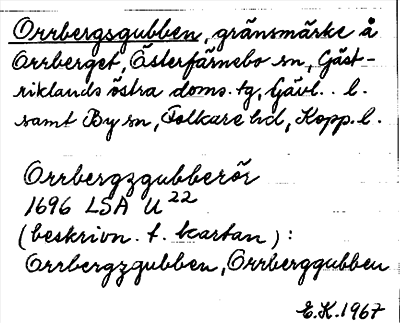 Orrbergsgubben, gränsmärke å
Orrberget, Österfärnebo sn, Gäst-
riklands östra doms. tg, Gävl. l.
samt By sn, Folkare hd, Kopp. l.
Orrbergzgubberör
1696 LSA U 22
(beskrivn. t. kartan):
Orrbergzgubben, Orrberggubben
E.K. 1967